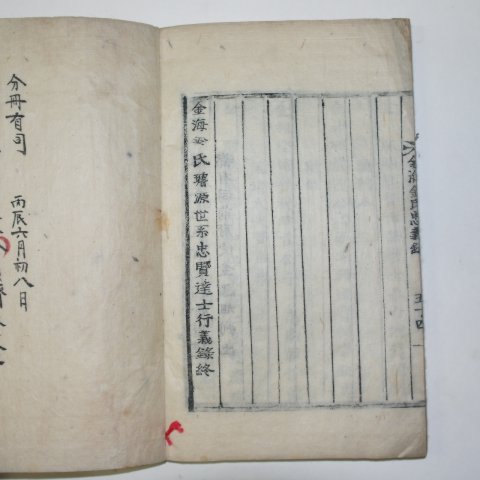 金海金氏璿源世系忠賢達士行義錄終
金海金氏忠義錄
五十四
分冊有司
丙辰六月初八日